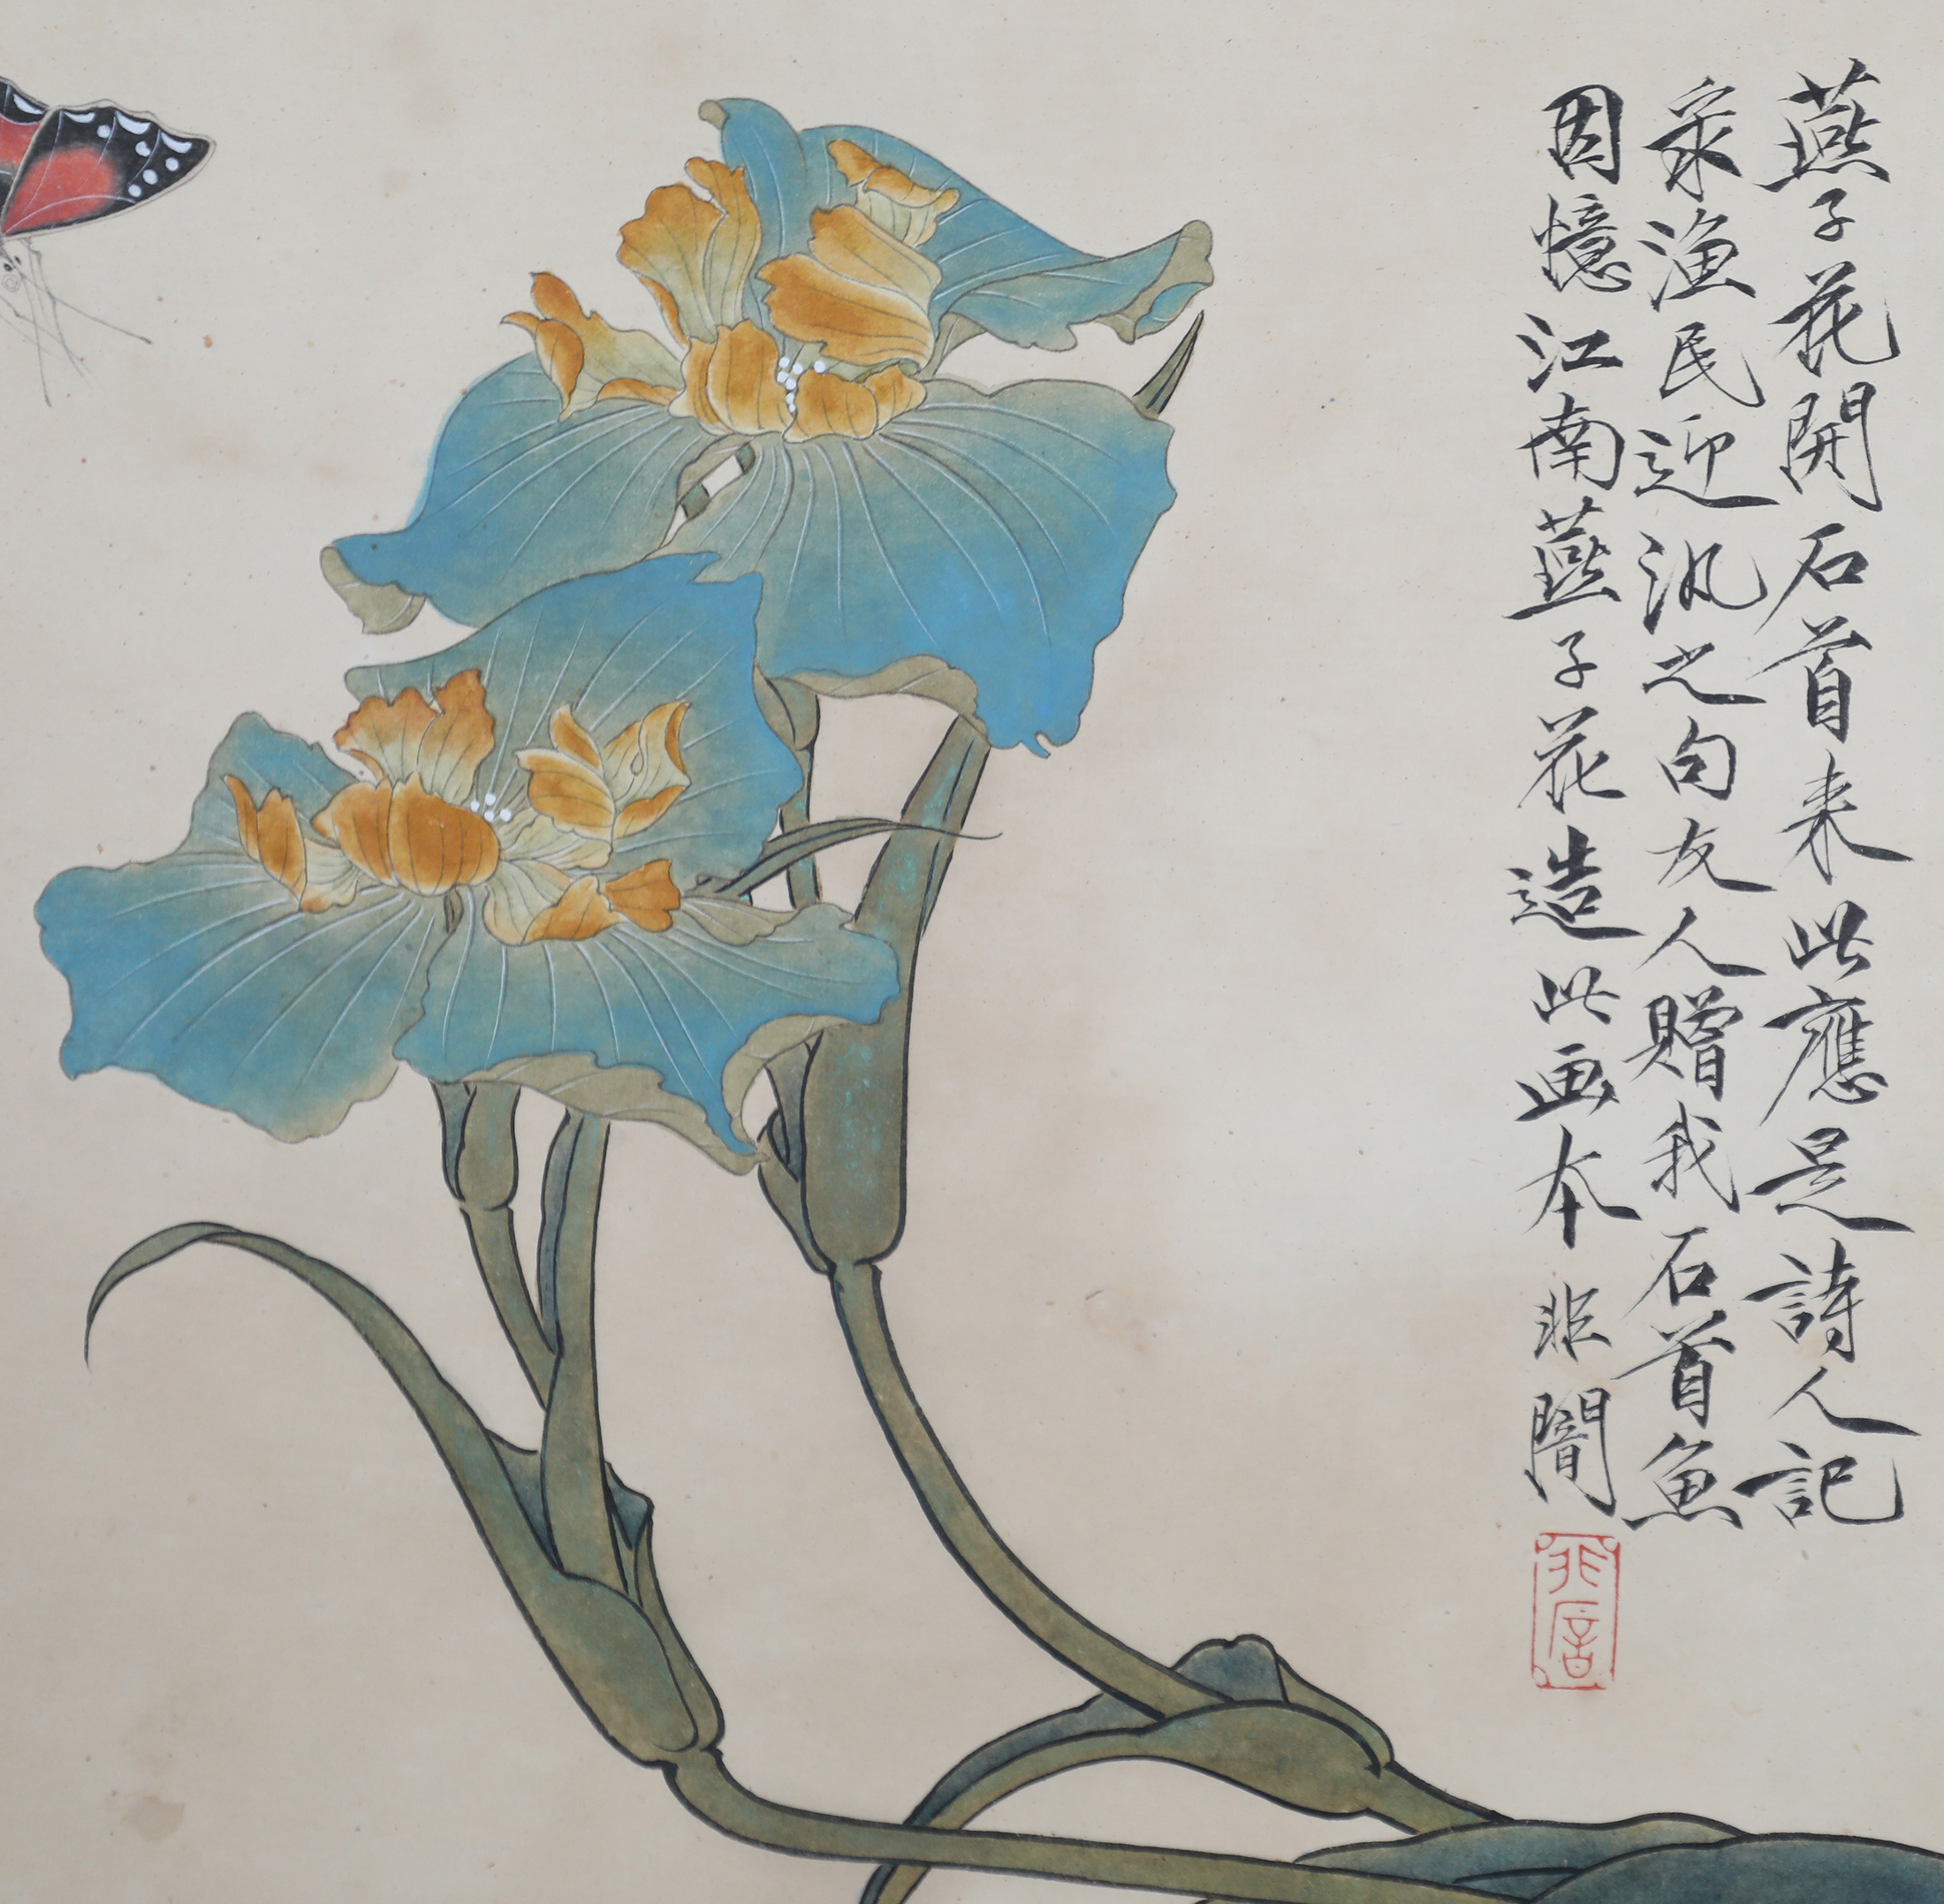 燕子花開石首来此應是詩人記
宋渔民迎汛之句友人贈我石首魚
因憶江南燕子花造此画本 非闇
非闇